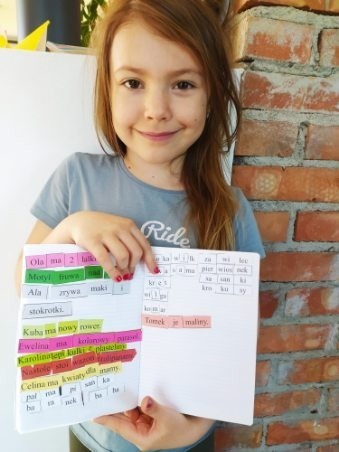 Ride
Ola ma 2 lalki
Motyl fruwa nad
Ala zrywa maki i
stokrotki.
Kuba ma nowy rower.
Ewelina ma kolorowy parasol.
Karolina lepi kulki z plasteliny.
Celina ma kwiaty dla mamy.
pal ma pi san ka
ba ra nek ba ba
za wi lec
pier wios nek
sa san ki
kro ku sy
Tomek je maliny.